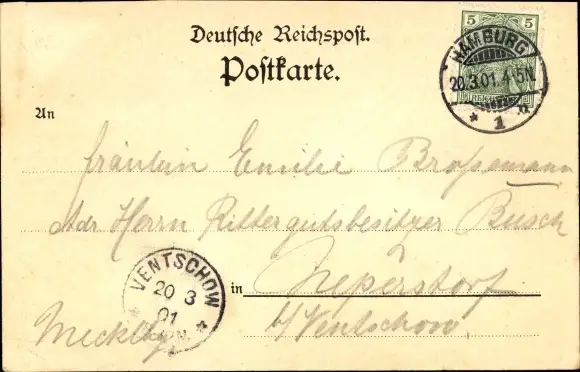 Deutsche Reichspost.
Postkarte.
5 5
HAMBURG
20.3.01. 4-5N.
* 1 n
An
Fräulein Emilie Brossmann
Adr Herrn Rittergutsbesitzer Busch
in Neperstorf
b/Ventschow
Mecklbg.
VENTSCHOW
20 3
01